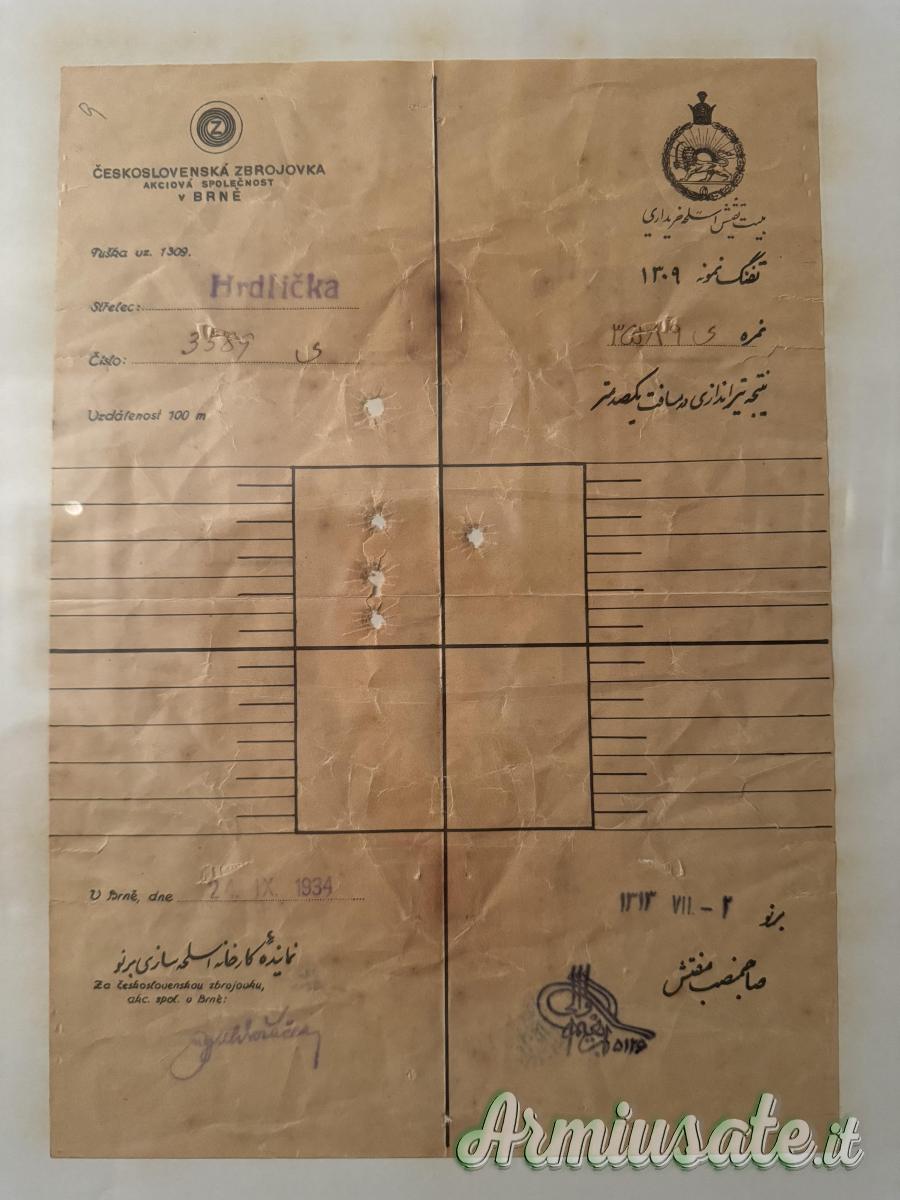 Z
ČESKOSLOVENSKÁ ZBROJOVKA
AKCIOVÁ SPOLEČNOST
V BRNĚ
Puška vz. 1309.
Střelec: Hrdlička
Číslo: ى
Vzdálenost 100 m
هیئت تفتیش اسلحه خریداری
تفنگ نمونه ۱۳۰۹
نمره ی
نتیجه تیراندازی در مسافت یکصد متر
V Brně, dne 24. IX. 1934
نمایندهٔ کارخانه اسلحه سازی برنو
Za československou zbrojovku,
akc. spol. v Brně:
برنو ۲ - VII. ۱۳۱۳
صاحبمنصب مفتش
Armiusate.it